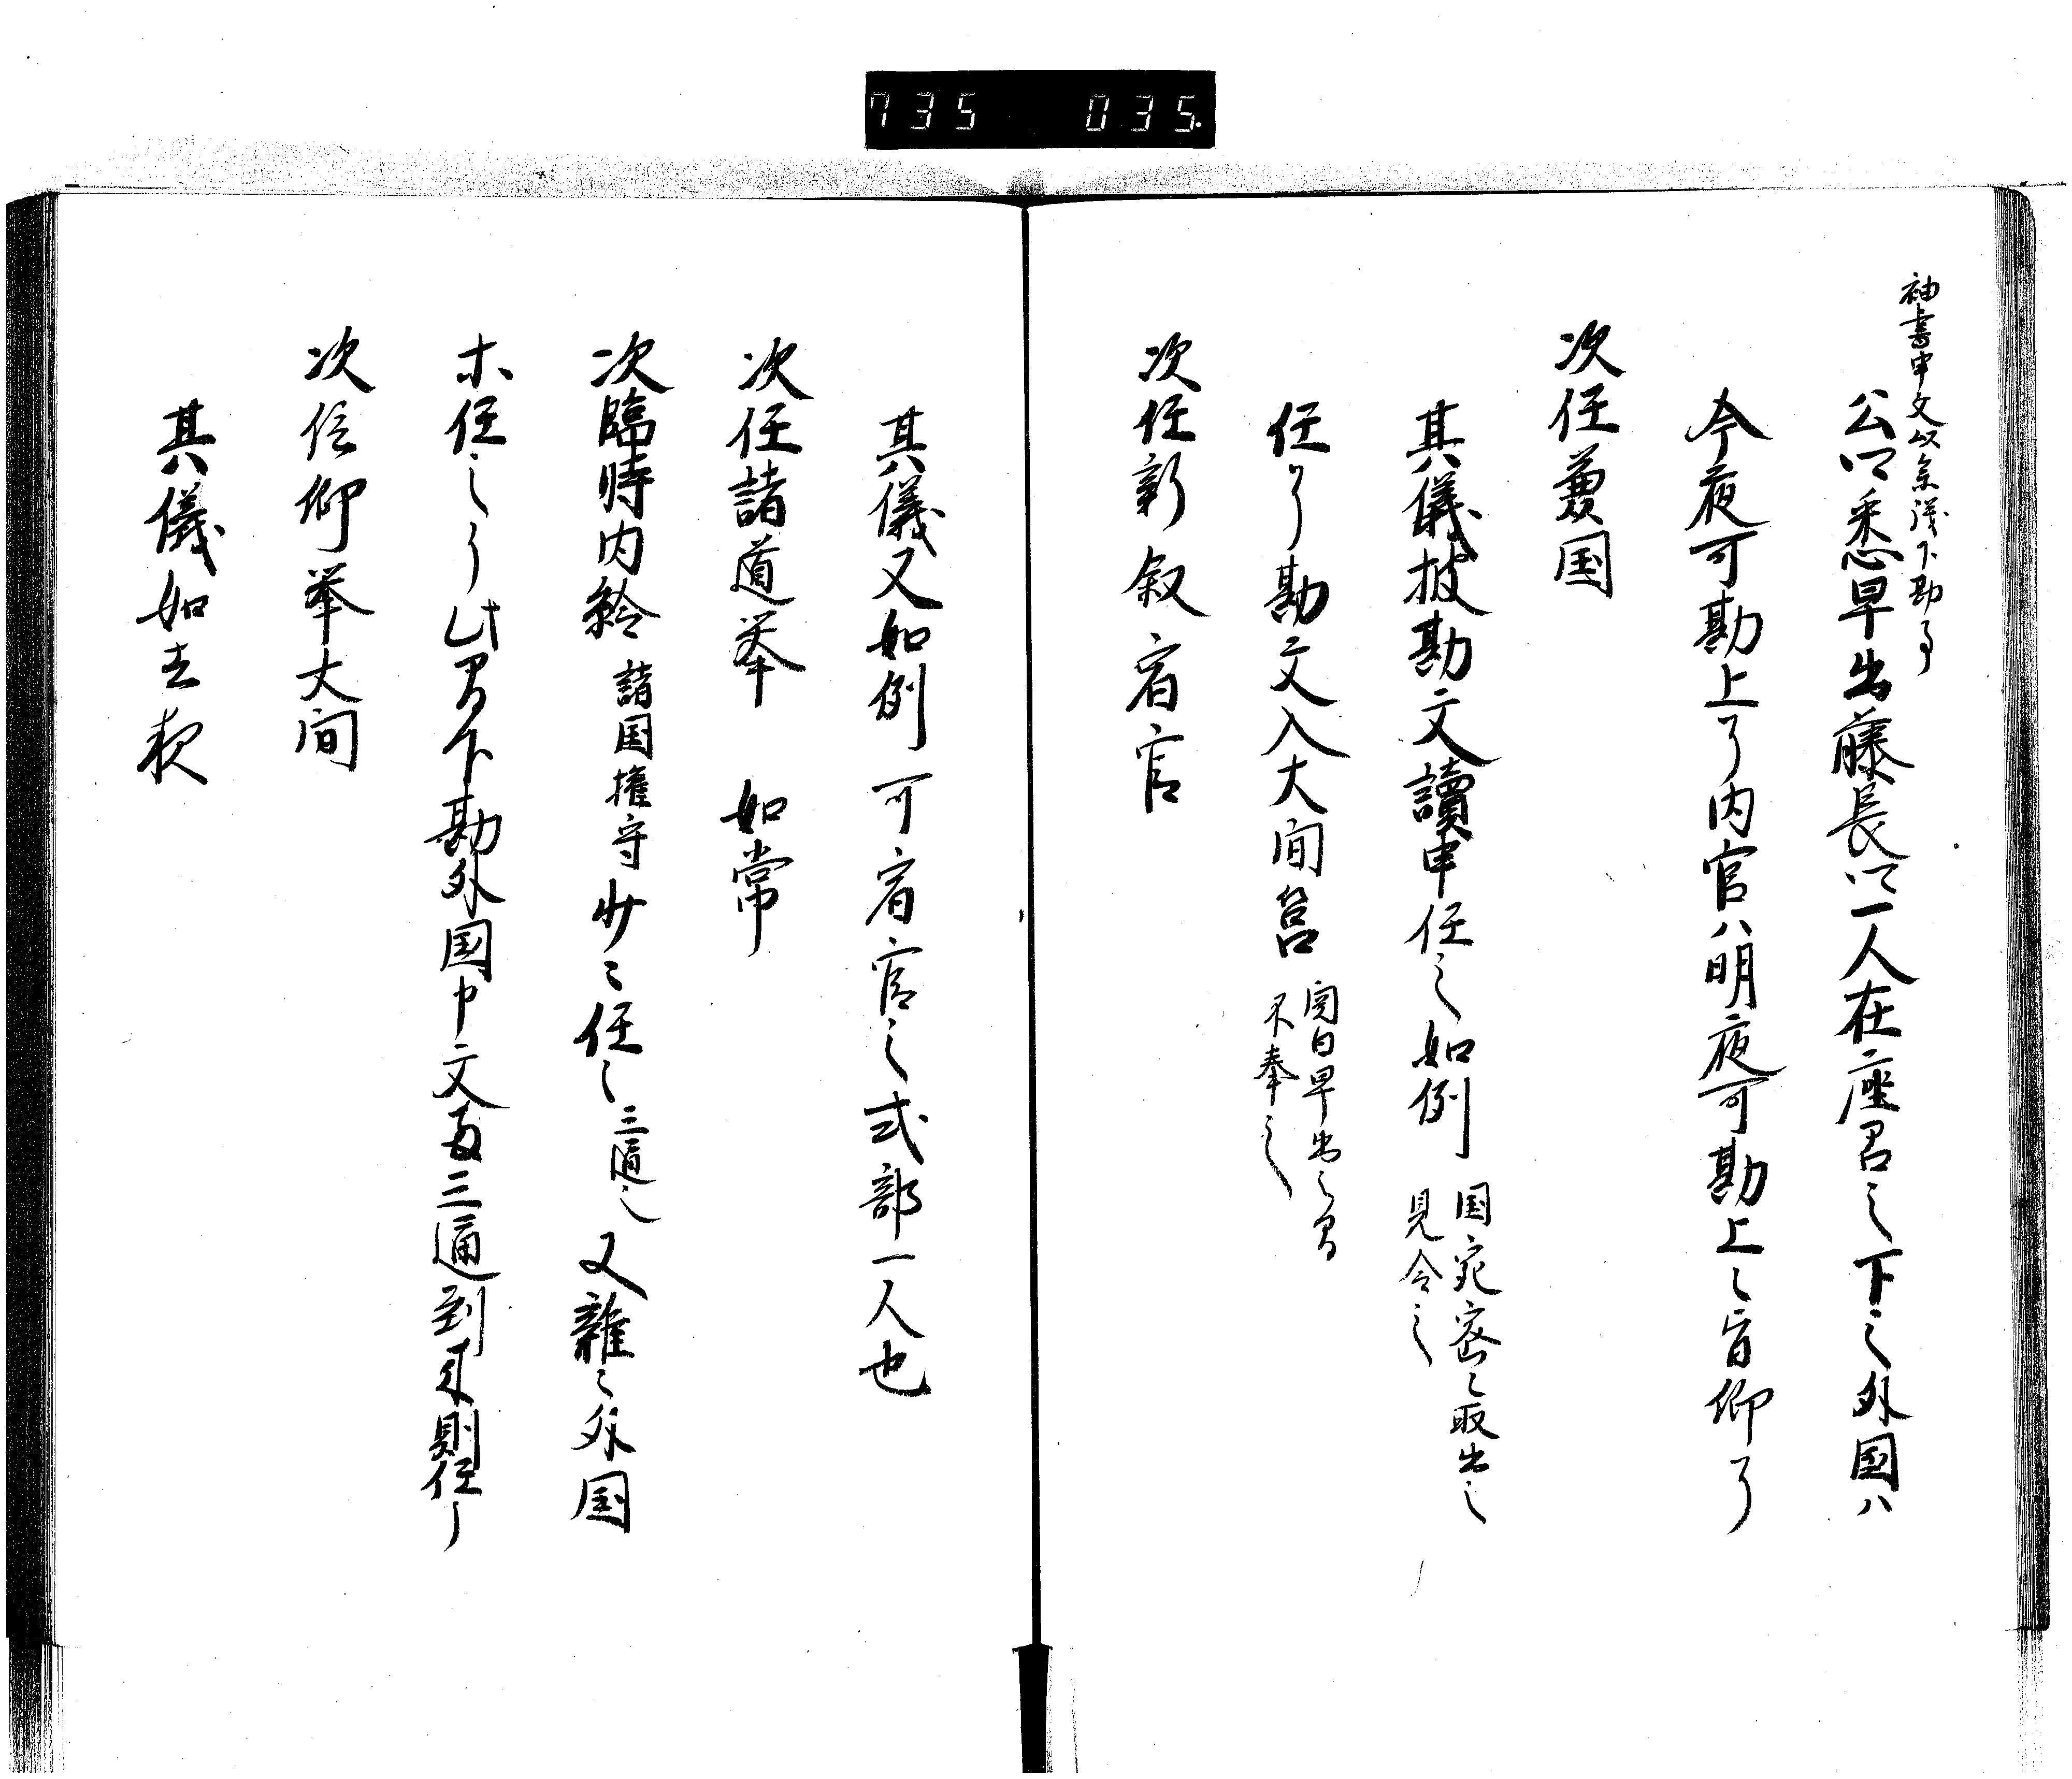 735 035
袖書申文以参議下勘事
公卿悉早出藤長卿一人在座召之下之外国ハ
今夜可勘上了内官ハ明夜可勘上之旨仰了
次任兼国
其儀披勘文讀申任之如例 国宛密々取出之
見合之
任了勘文入大間筥 関白早出之間
不奉之
次任新叙宿官
其儀又如例可宿官之式部一人也
次任諸道挙 如常
次臨時内給 諸国権守少々任之 三通也 又雑々外国
等任之了此間下勘外国申文両三通到来則任了
次任仰挙大間
其儀如去夜